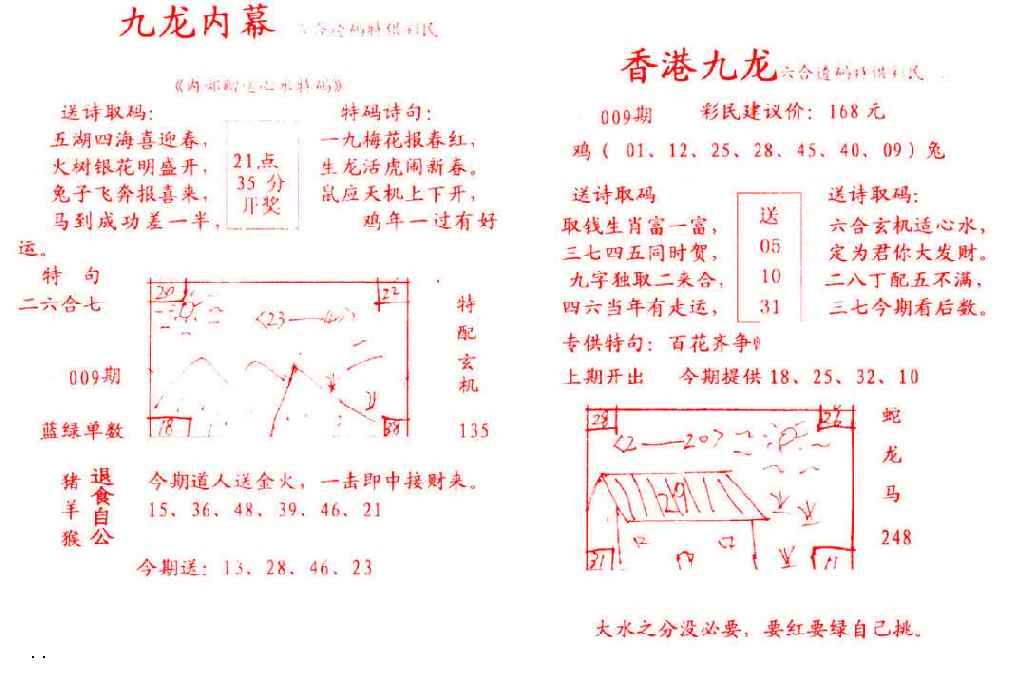 九龙内幕
送诗取码:
五湖四海喜迎春，
火树银花明盛开，
兔子飞奔报喜来，
马到成功差一半，
21点
35分
开奖
特码诗句:
一九梅花报春红，
生龙活虎闹新春。
鼠应天机上下开，
鸡年一过有好
运。
特 句
二六合七
009期
蓝绿单数
20
22
23
18
38
特
配
玄
机
135
猪
羊
猴
退
食
自
公
今期道人送金火，一击即中接财来。
15、36、48、39、46、21
今期送: 13、28、46、23
香港九龙
六合透码特供彩民
009期 彩民建议价: 168元
鸡（ 01、12、25、28、45、40、09）兔
送诗取码
取钱生肖富一富，
三七四五同时贺，
九字独取二来合，
四六当年有走运，
送
05
10
31
送诗取码:
六合玄机适心水，
定为君你大发财。
二八丁配五不满，
三七今期看后数。
专供特句: 百花齐争
上期开出 今期提供 18、25、32、10
28
26
<2——20>
21
11
蛇
龙
马
248
大水之分没必要，要红要绿自己挑。